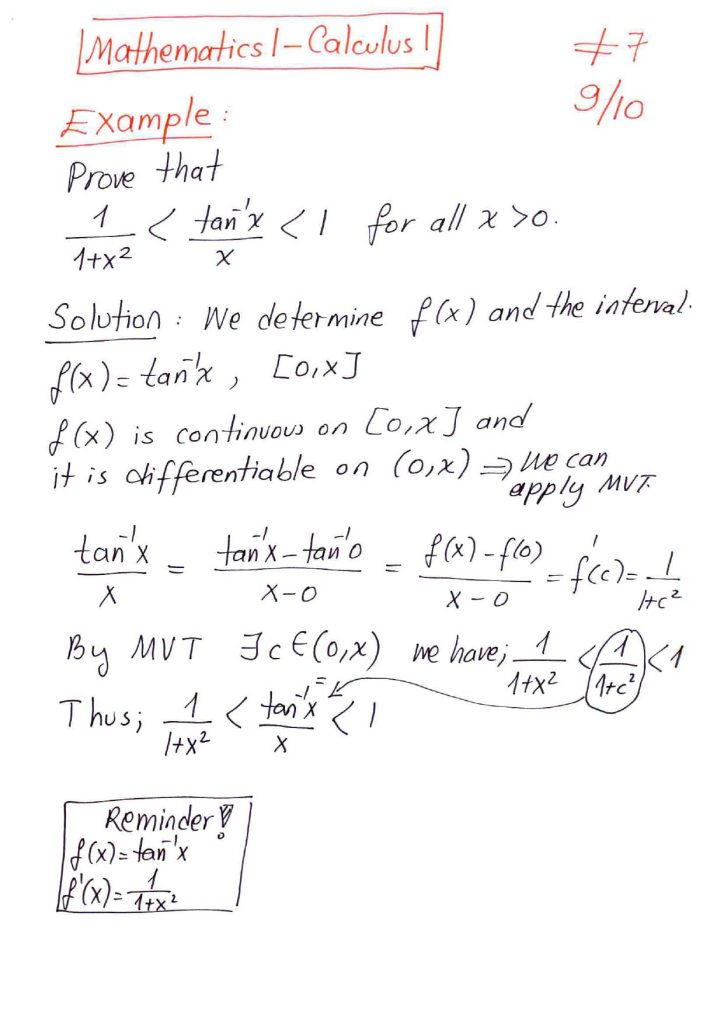 Mathematics 1 - Calculus 1
#7
9/10
Example:
Prove that
1/(1+x²) < tan⁻¹x/x < 1 for all x > 0.
Solution: We determine f(x) and the interval.
f(x) = tan⁻¹x, [0,x]
f(x) is continuous on [0,x] and
it is differentiable on (0,x) ⇒ we can
apply MVT.
tan⁻¹x/x = (tan⁻¹x - tan⁻¹0)/(x-0) = (f(x) - f(0))/(x-0) = f'(c) = 1/(1+c²)
By MVT ∃c∈(0,x) we have; 1/(1+x²) < 1/(1+c²) < 1
Thus; 1/(1+x²) < tan⁻¹x/x < 1
=
Reminder!
f(x) = tan⁻¹x
f'(x) = 1/(1+x²)